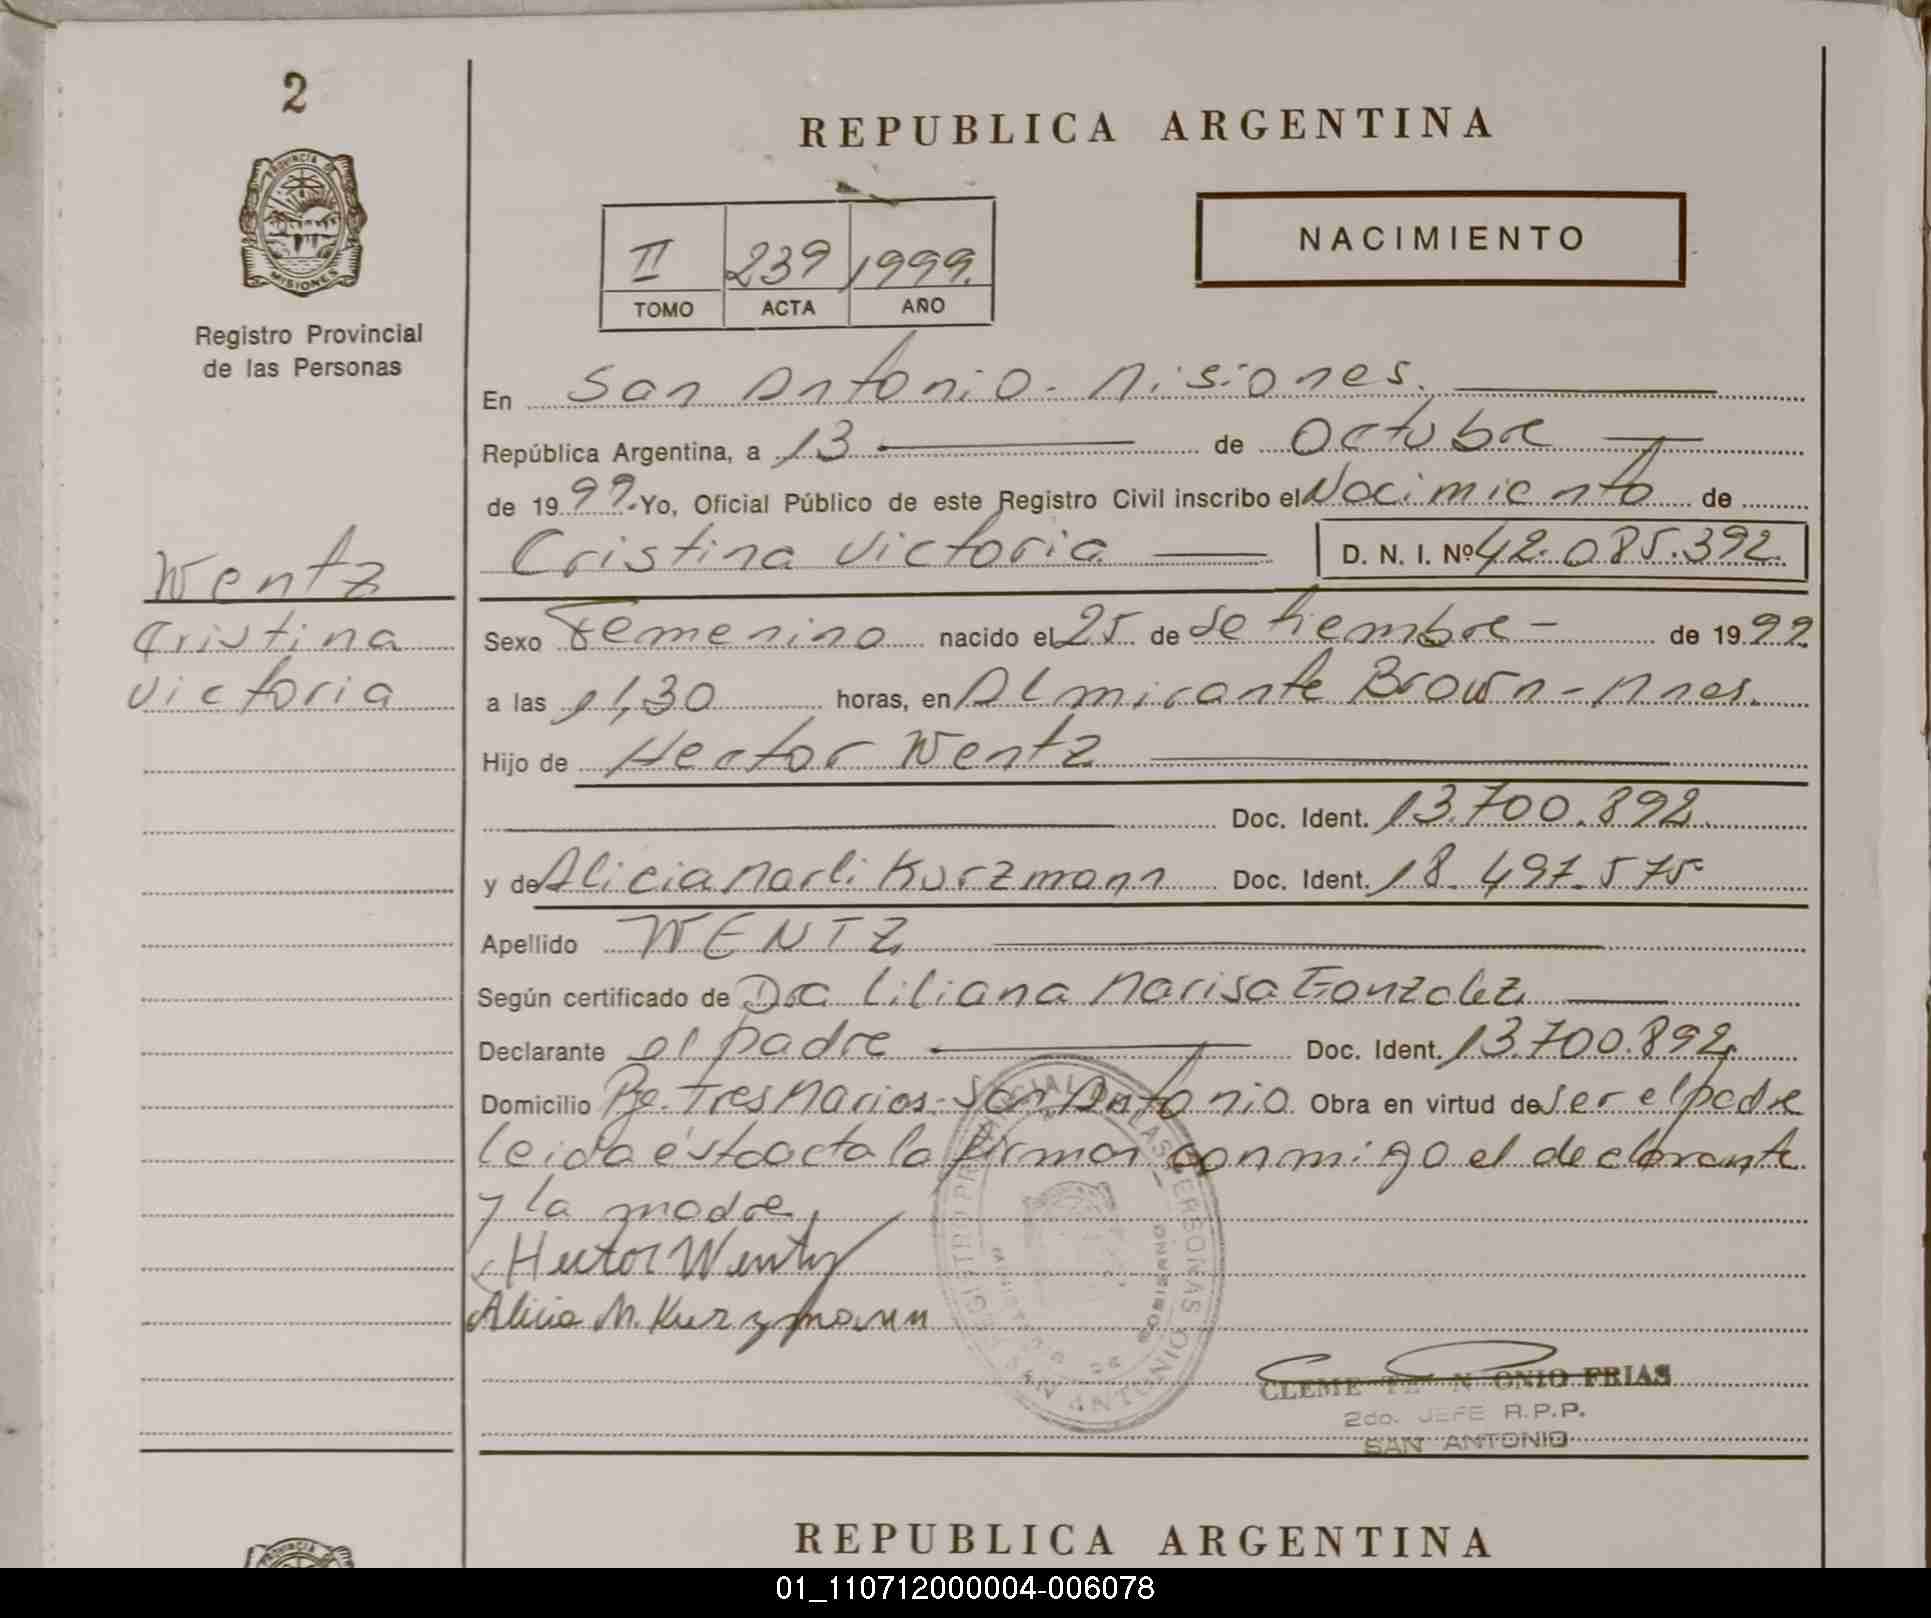 2
PROVINCIA DE
MISIONES
Registro Provincial
de las Personas
Wentz
Cristina
Victoria
REPUBLICA ARGENTINA
NACIMIENTO
II 239 1999.
TOMO ACTA AÑO
En San Antonio - Misiones.
República Argentina, a 13 de Octubre
de 1999. Yo, Oficial Público de este Registro Civil inscribo el Nacimiento de
Cristina Victoria D. N. I. Nº 42.085.392.
Sexo Femenino nacido el 25 de Setiembre - de 1999
a las 11,30 horas, en Almirante Brown - Mnes.
Hijo de Hector Wentz
Doc. Ident. 13.700.892.
y de Alicia Marli Kurzmann Doc. Ident. 18.497.575
Apellido WENTZ
Según certificado de Dra Liliana Marisa Gonzalez
Declarante el padre Doc. Ident. 13.700.892
Domicilio Pje. Tres Marias - San Antonio Obra en virtud de ser el padre
leida ésta acta la firman conmigo el declarante
y la madre
Hector Wentz
Alicia M. Kurzmann
REGISTRO PROVINCIAL DE LAS PERSONAS
MINISTERIO DE GOBIERNO
SAN ANTONIO
FRIAS
2do. JEFE R.P.P.
SAN ANTONIO
REPUBLICA ARGENTINA
PROVINCIA DE
01_110712000004-006078